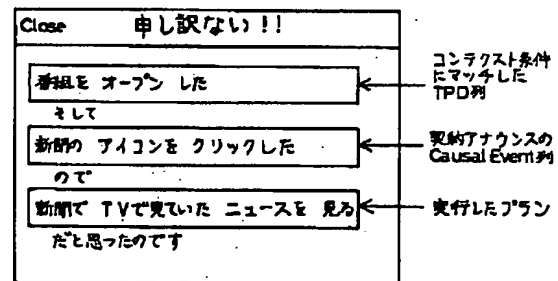 Close 申し訳ない!!
番組を オープン した
そして
新聞の アイコンを クリックした
ので
新聞で TVで見ていた ニュースを 見る
だと思ったのです
コンテクスト条件
にマッチした
TPO列
契約アナウンスの
Causal Event列
実行したプラン